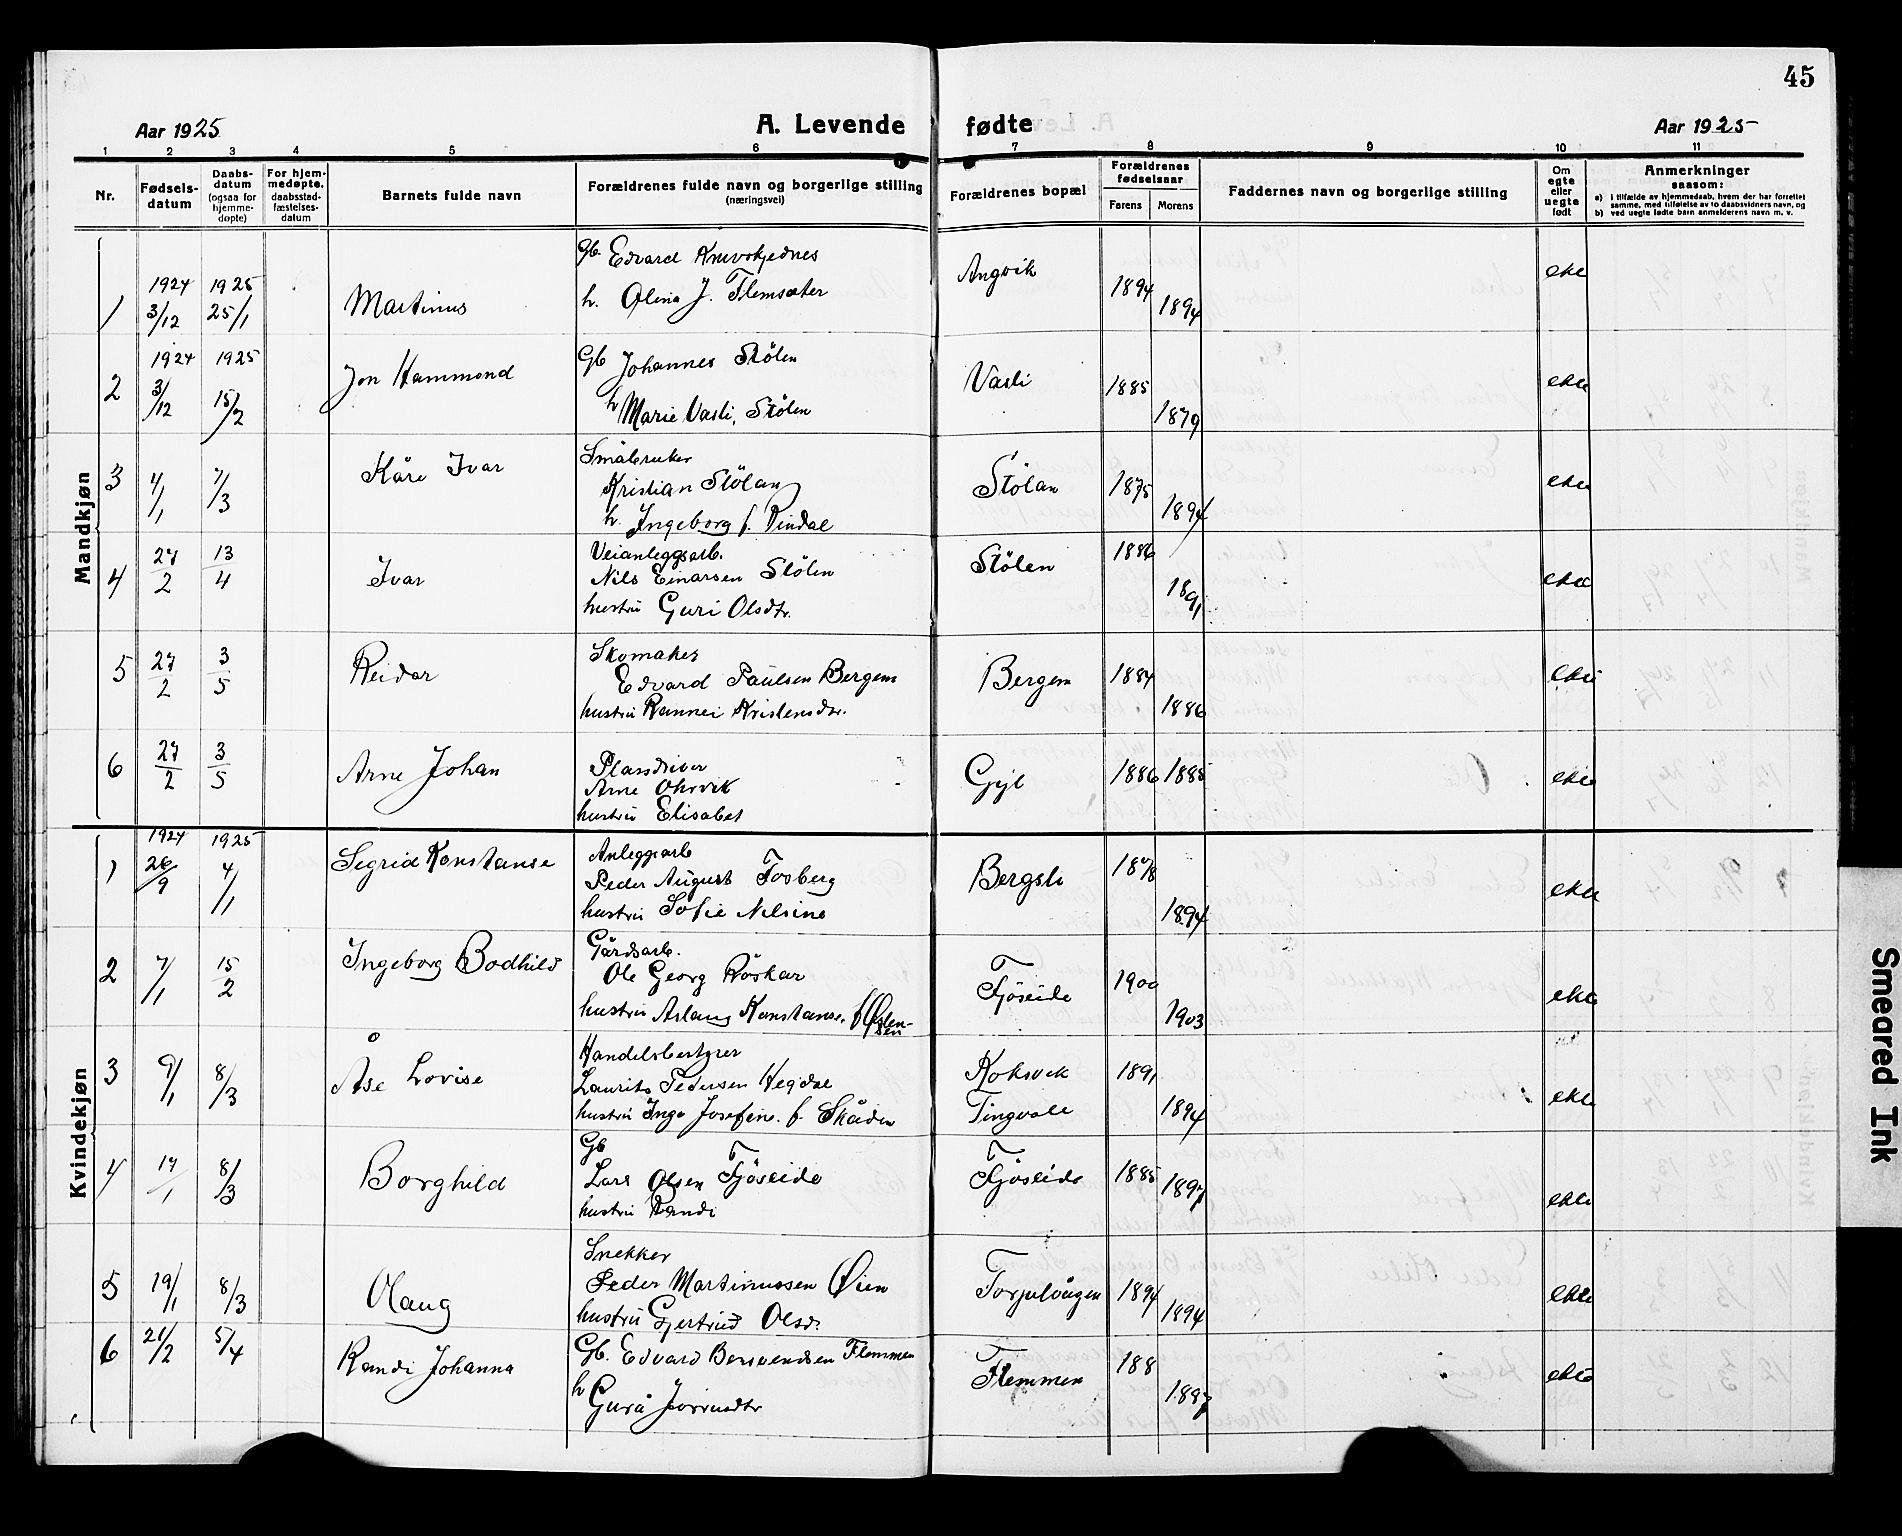 45
Aar 1925
A. Levende fødte
Aar 1925
1 2 3 4 5 6 7 8 9 10 11
Nr.
Fødsels-
datum
Daabs-
datum
(ogsaa for
hjemme-
døpte)
For hjem-
medøpte,
daabsstad-
fæstelses-
datum
Barnets fulde navn
Forældrenes fulde navn og borgerlige stilling
(næringsvei)
Forældrenes bopæl
Forældrenes
fødselsaar
Farens Morens
Faddernes navn og borgerlige stilling
Om
egte
eller
uegte
født
Anmerkninger
saasom:
a) i tilfælde av hjemmedaab, hvem der har forrettet
samme, med tilføielse av to daabsvidners navn, og
b) ved uegte fødte barn anmelderens navn m. v.
Mandkjøn
1 1924 3/12 1925 25/1 Martinus
Gb. Edvard
h. Olina J. Flemsæter
Angvik 1894 1894 ekte
2 1924 3/12 1925 15/2 Jon Hammond
Gb Johannes Stölen
h Marie Vasli, Stölen
Vasli 1885 1879 ekte
3 4/1 7/3 Kåre Ivar
Småbruker
Kristian Stölan
h. Ingeborg f. Rindal
Stölan 1875 1894 ekte
4 27/2 13/4 Ivar
Veianleggsarb.
Nils Einarsen Stölen
hustru Guri Olsdtr.
Stölen 1886 1891 ekte
5 27/2 3/5 Reidar
Skomaker
Edvard Paulsen Bergem
hustru Rannei Kristensdr.
Bergem 1884 1886 ekte
6 27/2 3/5 Arne Johan
Plassdriver
Arne
hustru Elisabet
Gyl 1886 1885 ekte
Kvindekjøn
1 1924 26/9 1925 4/1 Sigrid Konstanse
Anleggsarb
Peder August Fosberg
hustru Sofie Nilsine
Bergsli 1878 1894 ekte
2 7/1 15/2 Ingeborg Bodhild
Gårdsarb.
Ole Georg Röskar
hustru Aslaug Konstanse. f Østen-
sen
Fjöseide 1900 1903 ekte
3 9/1 8/3 Åse Lovise
Handelsbestyrer
Laurits Pedersen Hegdal
hustru Inga Josefine. f.
Koksvik
Tingvoll 1891 1894 ekte
4 17/1 8/3 Borghild
Gb
Lars Olsen Fjöseide
hustru Randi
Fjöseide 1885 1897 ekte
5 19/1 8/3 Olaug
Snekker
Peder Martinussen Øien
hustru Gjertrud Olsd.
Torjulvågen 1894 1894 ekte
6 21/2 5/4 Randi Johanna
Gb. Edvard Bersvendsen Flemmen
h Gurå
Flemmen 188 1887 ekte
Smeared Ink